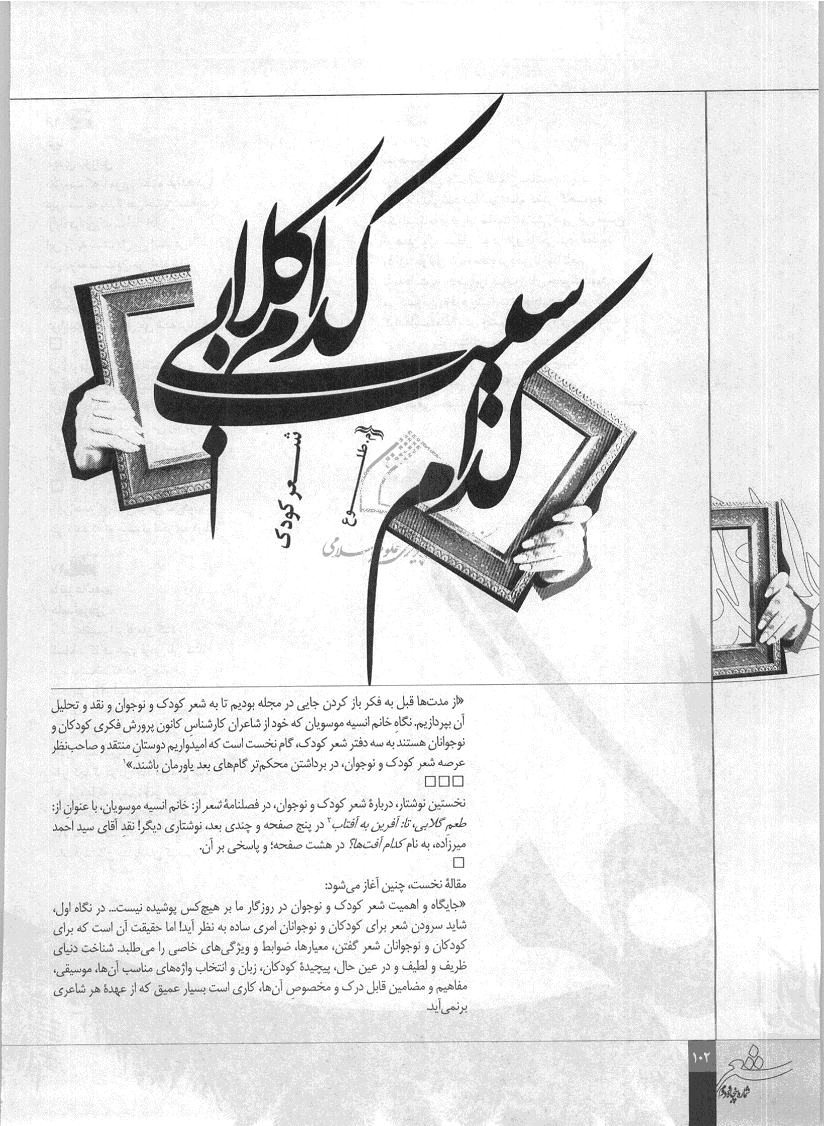 کدام گلابی
کدام سیب
شعر کودک
م. طلوع
«از مدت‌ها قبل به فکر باز کردن جایی در مجله بودیم تا به شعر کودک و نوجوان و نقد و تحلیل
آن بپردازیم. نگاهِ خانم انسیه موسویان که خود از شاعران کارشناسِ کانون پرورش فکری کودکان و
نوجوانان هستند به سه دفتر شعر کودک، گام نخست است که امیدواریم دوستانِ منتقد و صاحب‌نظر
عرصه شعر کودک و نوجوان، در برداشتن محکم‌تر گام‌های بعد یاورمان باشند.»۱
□□□
نخستین نوشتار، دربارهٔ شعر کودک و نوجوان، در فصلنامهٔ شعر از: خانم انسیه موسویان، با عنوان از:
طعم گلابی، تا: آفرین به آفتاب۲ در پنج صفحه و چندی بعد، نوشتاری دیگر! نقدِ آقای سید احمد
میرزاده، به نام کدام آفت‌ها؟ در هشت صفحه؛ و پاسخی بر آن.
□
مقالهٔ نخست، چنین آغاز می‌شود:
«جایگاه و اهمیت شعر کودک و نوجوان در روزگار ما بر هیچ‌کس پوشیده نیست... در نگاه اول،
شاید سرودن شعر برای کودکان و نوجوانان امری ساده به نظر آید! اما حقیقت آن است که برای
کودکان و نوجوانان شعر گفتن، معیارها، ضوابط و ویژگی‌های خاصی را می‌طلبد. شناخت دنیای
ظریف و لطیف و در عین حال، پیچیدهٔ کودکان، زبان و انتخاب واژه‌های مناسب آن‌ها، موسیقی،
مفاهیم و مضامین قابل درک و مخصوصِ آن‌ها، کاری است بسیار عمیق که از عهدهٔ هر شاعری
برنمی‌آید.
۱۰۲
شعر